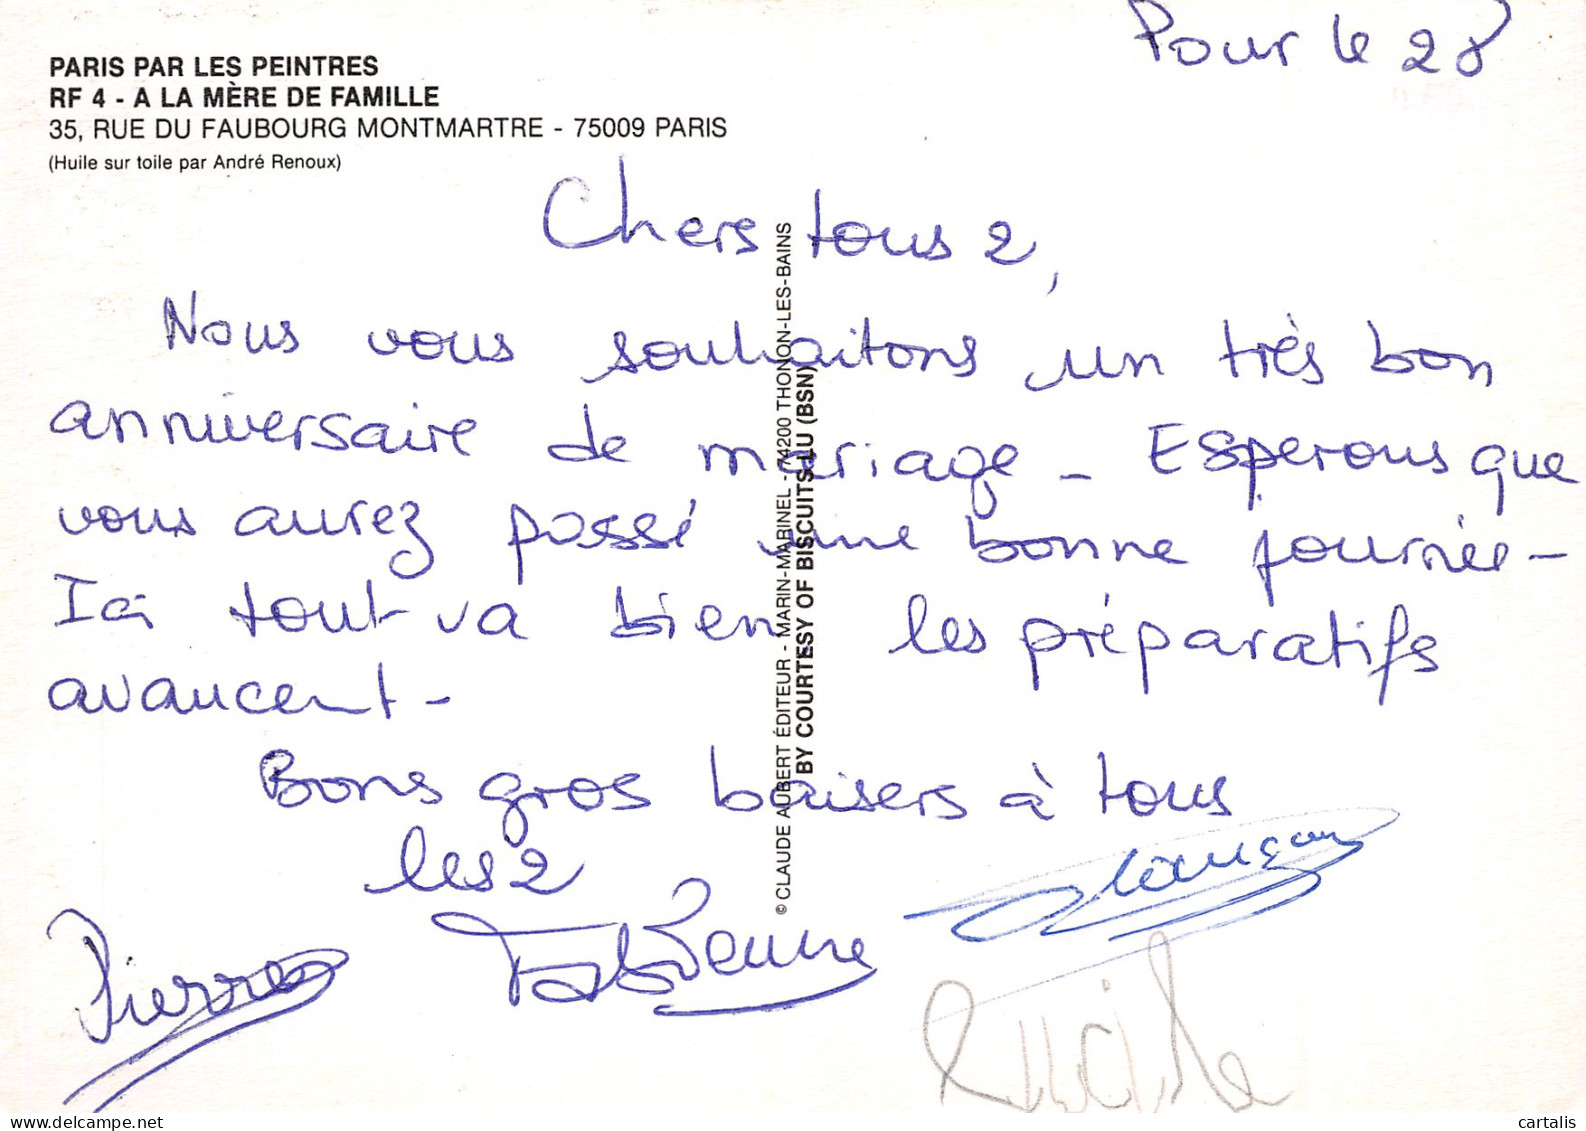 Pour le 28
PARIS PAR LES PEINTRES
RF 4 - A LA MÈRE DE FAMILLE
35, RUE DU FAUBOURG MONTMARTRE - 75009 PARIS
(Huile sur toile par André Renoux)
Chers tous 2,
Nous vous souhaitons un très bon
anniversaire de mariage - Esperons que
vous aurez passé une bonne journée -
Ici tout va bien les préparatifs
avancent -
Bons gros baisers à tous
les 2
Pierre Fabienne
Lucile
© CLAUDE AUBERT ÉDITEUR - MARIN-MARINEL - 74200 THONON-LES-BAINS
BY COURTESY OF BISCUITS LU (BSN)
www.delcampe.net
cartalis